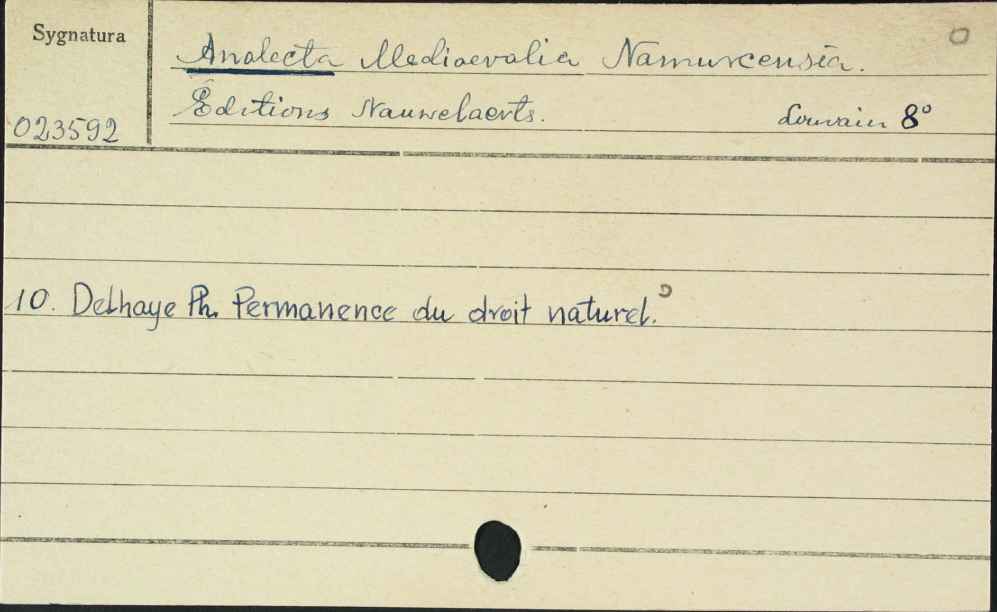 Sygnatura
Analecta Mediaevalia Namurcensia.
Editions Nauwelaerts. Louvain 8°
023592
10. Delhaye Ph. Permanence du droit naturel.